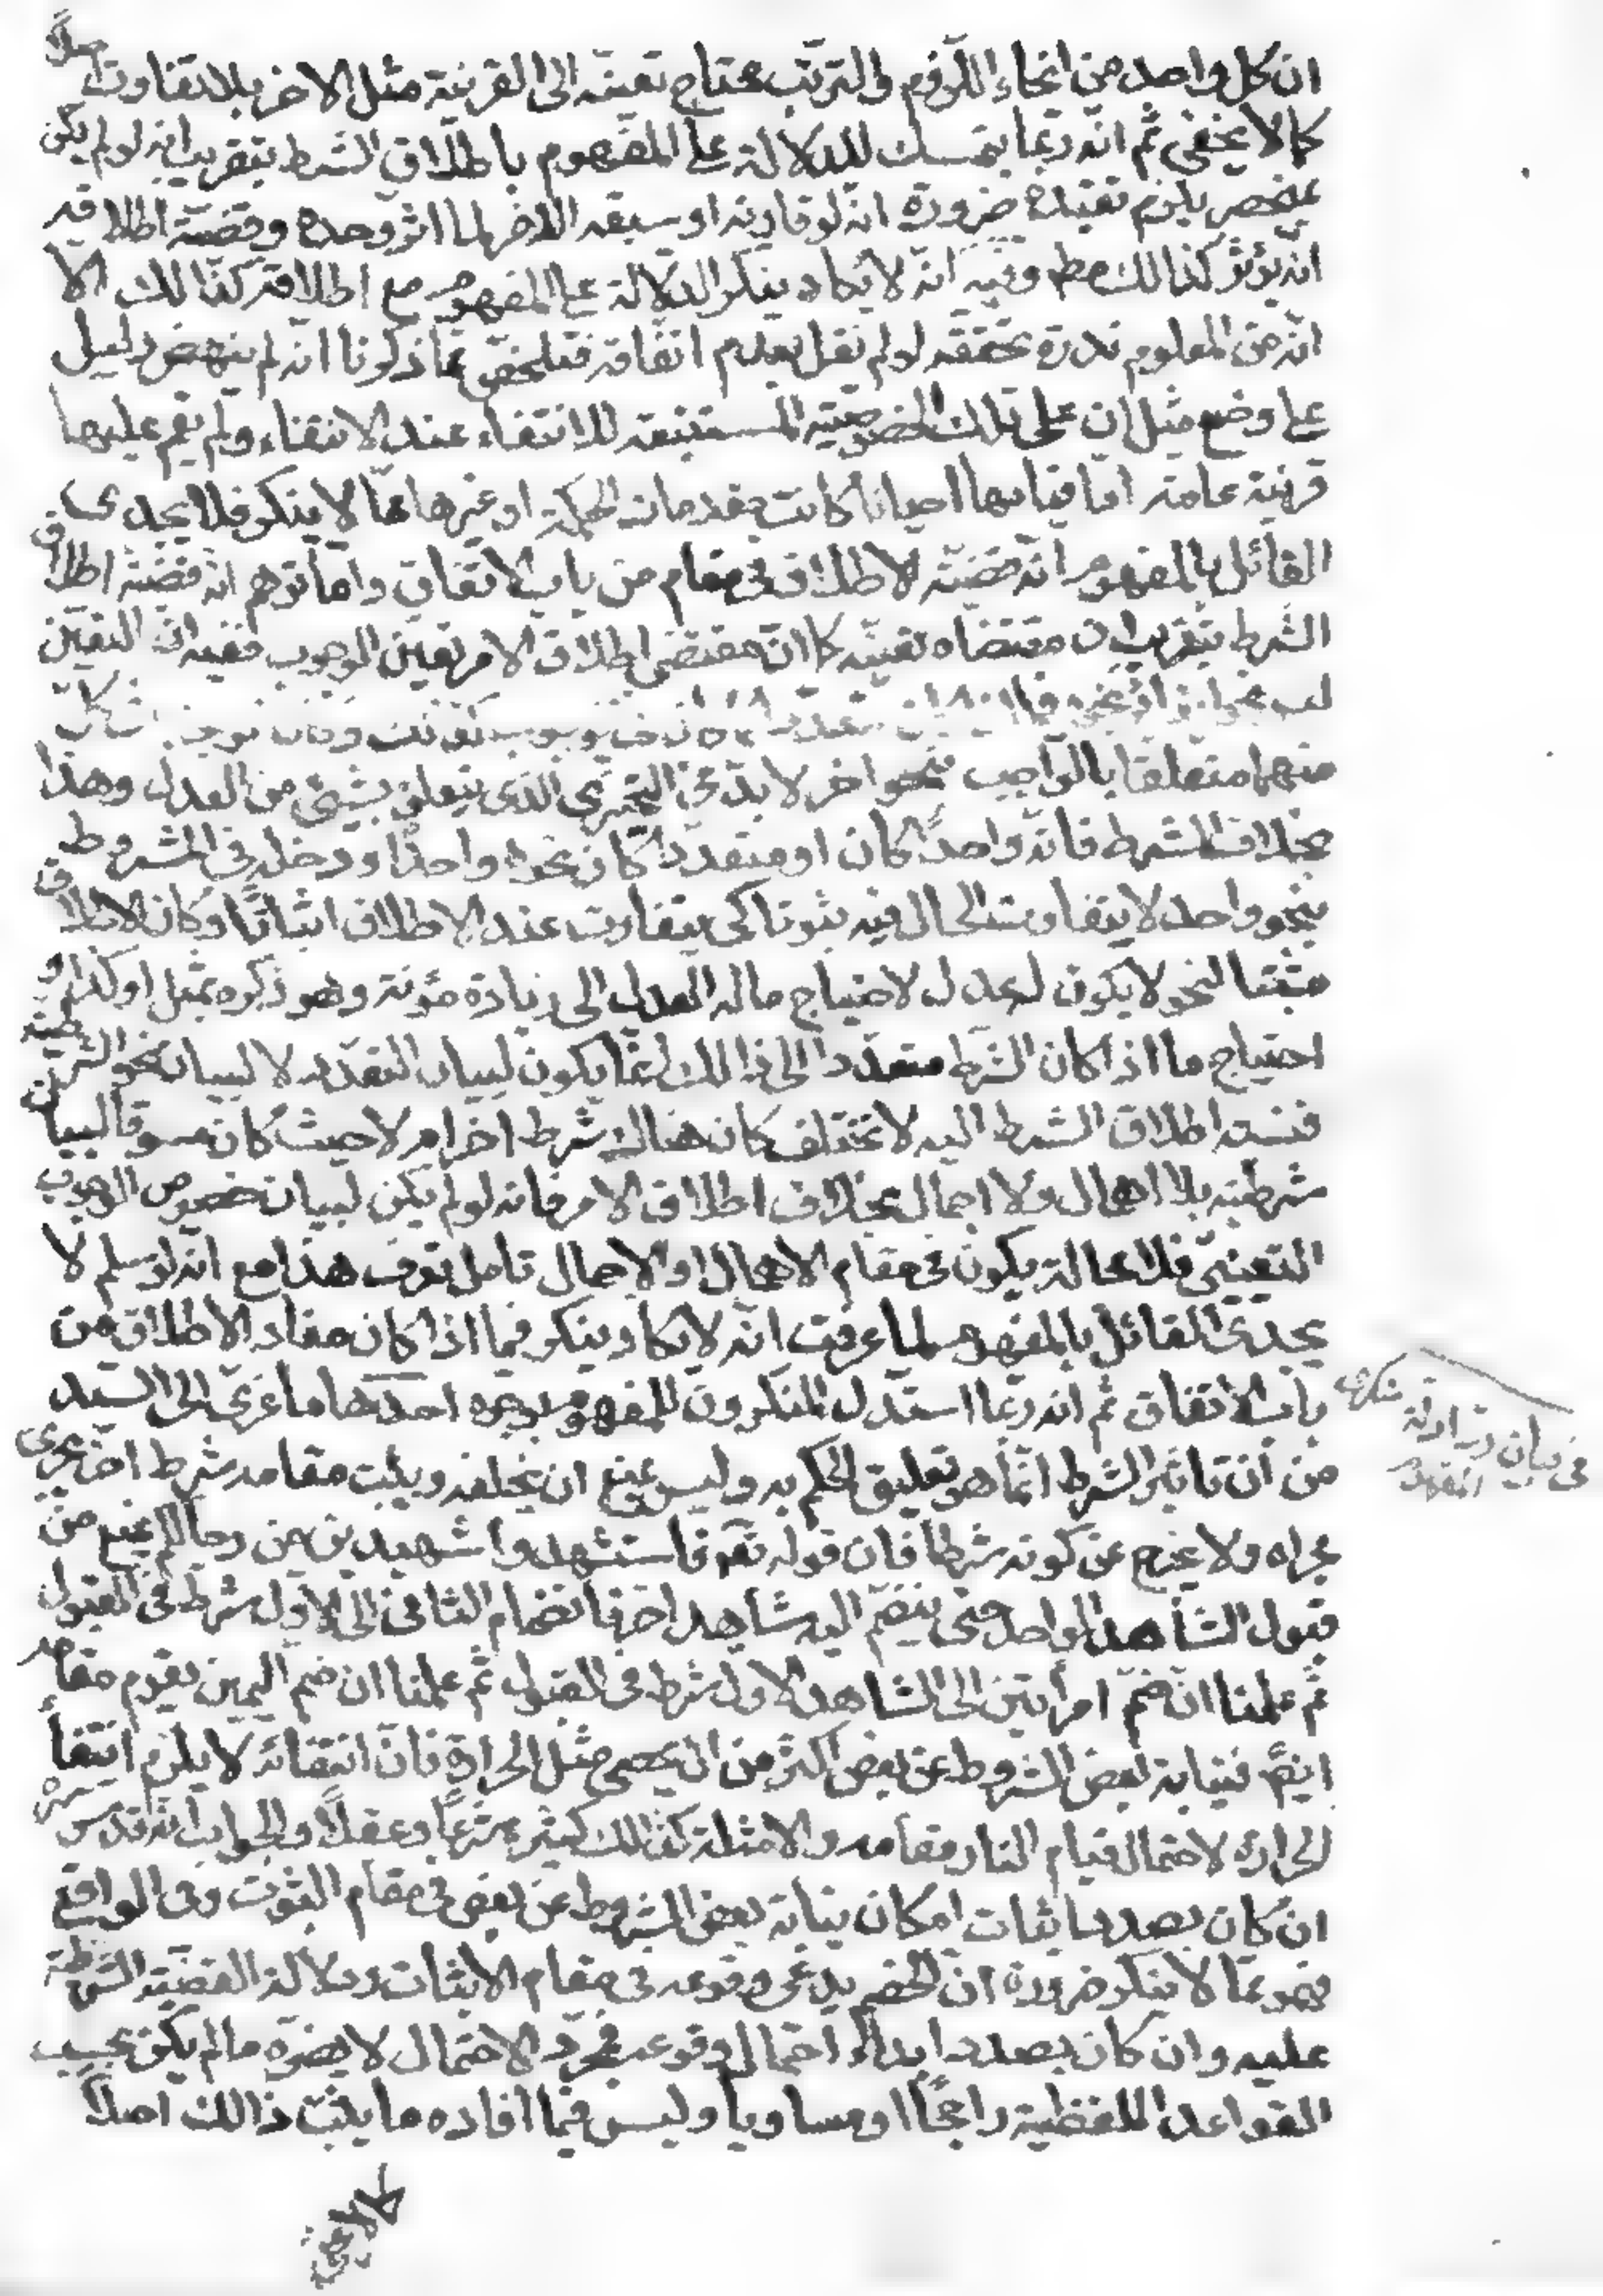 ان كل واحد من انحاء اللزوم والترتب محتاج تعينه الى القرينة مثل الاخر بلا تفاوت اصلاً
كما لا يخفى ثم انه ربما يتمسك للدلالة على المفهوم باطلاق الشرط بتقريب انه لو لم يكن
بمنحصر يلزم تقييده ضرورة انه لو قارنه او سبقه الاخر لما اثر وحده وقضية اطلاقه
انه يؤثر كذالك مط وفيه انه لا يكاد ينكر الدلالة على المفهوم مع اطلاقه كذالك الا
انه من المعلوم ندرة تحققه لو لم نقل بعدم اتفاقه فتلخص بما ذكرنا انه لم ينهض دليل
على وضع مثل ان على تلك الخصوصية المستتبعة للانتفاء عند الانتفاء ولم يقم عليها
قرينة عامة اما قيامها احيانا كانت مقدمات الحكمة او غيرها مما لا ينكر فلا يجدى
القائل بالمفهوم انه قضية الاطلاق فى مقام من باب الاتفاق واما توهم انه قضية اطلاق
الشرط بتقريب ان مقتضاه تعينه كما ان مقتضى اطلاق الامر تعين الوجوب ففيه ان التعين
منهما متعلقا بالواجب بنحو اخر لا بد فى التخييرى الذى يتعلق بشيئ من العدل وهذا
بخلاف الشرط فانه واحداً كان او متعددا كان نحوه واحداً ودخله فى المشروط
بنحو واحد لا يتفاوت الحال فيه ثبوتا كى يتفاوت عند الاطلاق اثباتاً وكان الاطلاق
مثبتا لنحو لا يكون له عدل لاحتياج ماله العدل الى زيادة مؤنة وهو ذكره بمثل او كذا و
احتياج ما اذا كان الشرط متعددا الى ذالك انما يكون لبيان التعدد لا لبيان نحو الشرطية
فنسبة اطلاق الشرط اليه لا تختلف كان هناك شرط اخر ام لا حيث كان مسوقا لبيان
شرطيته بلا اهمال ولا اجمال بخلاف اطلاق الامر فانه لو لم يكن لبيان خصوص الوجوب
التعينى فلا محالة يكون فى مقام الاهمال او الاجمال تامل تعرف هذا مع انه لو سلم لا
يجدى القائل بالمفهوم لما عرفت انه لا يكاد ينكر فيما اذا كان مفاد الاطلاق من
باب الاتفاق ثم انه ربما استدل المنكرون للمفهوم بوجوه احدها ما عزى الى السيد
من ان تاثير الشرط انما هو تعليق الحكم به وليس بمنع ان يخلفه وينيب مقامه شرط اخر يجرى
مجراه ولا يخرج عن كونه شرطا فان قوله تعه فاستشهدوا شهيدين من رجالكم يمنع من
قبول الشاهد الواحد حتى ينضم اليه شاهد اخر فانضمام الثانى الى الاول شرط فى القبول
ثم علمنا ان ضم امرأتين الى الشاهد الاول شرط فى القبول ثم علمنا ان ضم اليمين يقوم مقامه
ايضً فنيابة بعض الشروط عن بعض اكثر من ان يحصى مثل الحرارة فان انتفائه لا يلزم انتفاأ
الحرارة لاحتمال قيام النار مقامه والامثلة كذالك كثيرة شرعاً وعقلاً والجواب انه قدس سره
ان كان بصدد اثبات امكان نيابة بعض الشروط عن بعض فى مقام الثبوت وفى الواقع
فهو مما لا ينكر ضرورة ان الخصم يدعى وقوعه فى مقام الاثبات ودلالة القضية الشرطية
عليه وان كان بصدد ابداء احتمال وقوعه فمجرد الاحتمال لا يضره ما لم يكن بحسب
القواعد اللفظية راجحًا او مساويا وليس فيما افاده ما يثبت ذالك اصلاً
كما لا يخفى
فى بيان ادلة منكرى
المفهوم